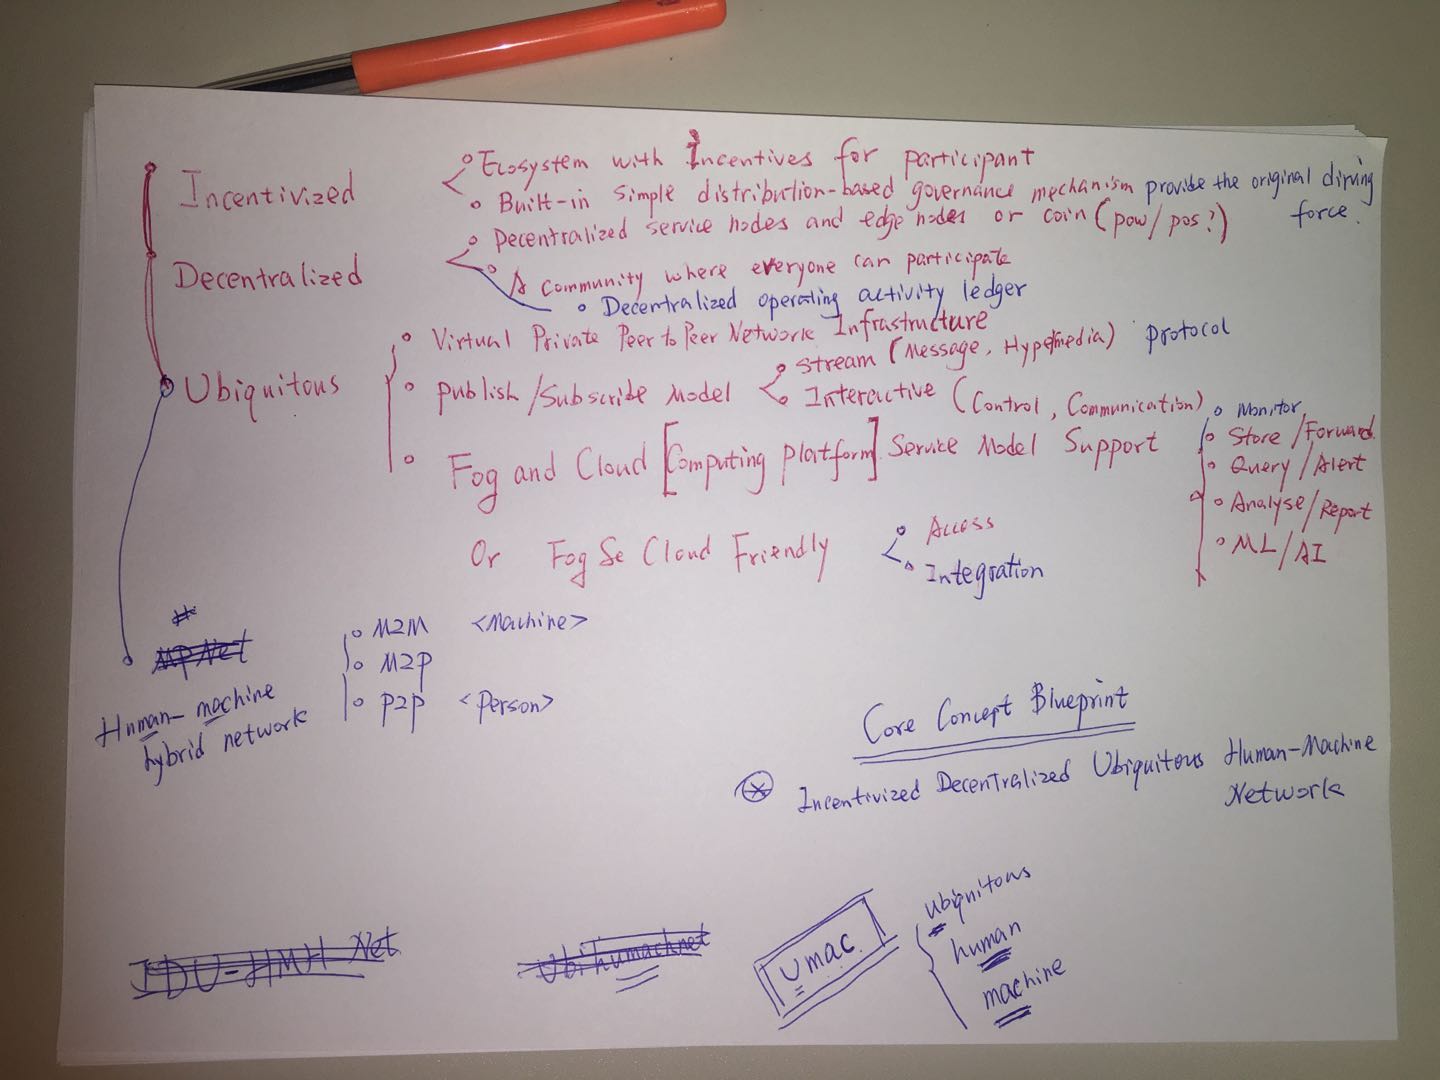 Incentivized
Ecosystem with Incentives for participant
Built-in simple distribution-based governance mechanism provide the original driving
force.
Decentralized
Decentralized service nodes and edge nodes or coin (pow/pos?)
A community where everyone can participate
Decentralized operating activity ledger
Ubiquitous
Virtual Private Peer to Peer Network Infrastructure
Publish/Subscribe Model
Stream (Message, Hypermedia) protocol
Interactive (Control, Communication)
Fog and Cloud [Computing Platform] Service Model Support
Monitor
Store/Forward
Query/Alert
Analyse/Report
ML/AI
Or Fog Se Cloud Friendly
Access
Integration
#
MPNet
Human-machine
hybrid network
M2M <Machine>
M2P
P2P <Person>
Core Concept Blueprint
Incentivized Decentralized Ubiquitous Human-Machine
Network
IDU-HMH Net
Ubihumachnet
Umac.
ubiquitous
human
machine